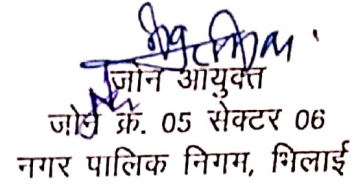 जोन आयुक्त
जोन क्रं. 05 सेक्टर 06
नगर पालिक निगम, भिलाई